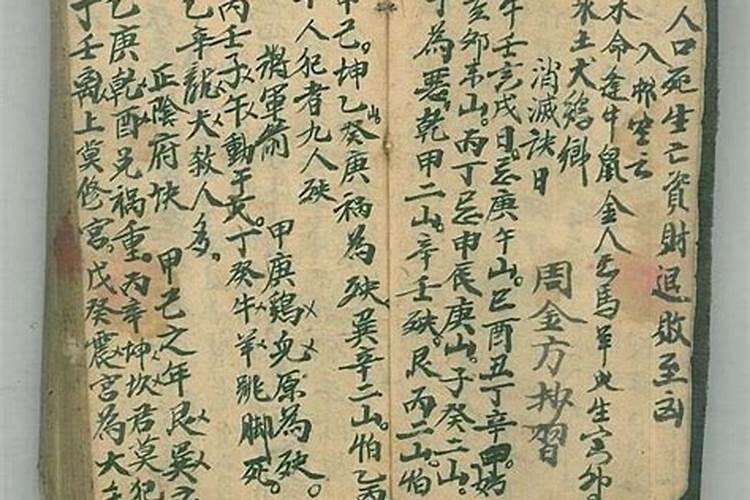 人口死生亡資財退敗至凶
入
木命逢牛鼠金人
水土犬鷄鄉
馬羊
生寅卯
消滅訣日
周金方抄習
午壬亥戌日。忌庚午山。巳酉丑丁辛甲
亥卯未山。丙丁忌申辰庚山。子癸二山。
為惡。乾甲二山。辛壬殃。艮丙二山。怕
甲己。坤乙山癸庚禍為殃巽辛二山。怕乙丙
人犯者九人殃
將軍箭
甲庚鷄兔原為殃。
丙壬子午動干戈。丁癸牛羊跳脚死。
乙辛龍犬殺人多。
正陰府快
甲己之年艮巽
乙庚乾酉兌禍重。丙辛坤坎君莫犯
丁壬離上莫修宮。戊癸震宮為大